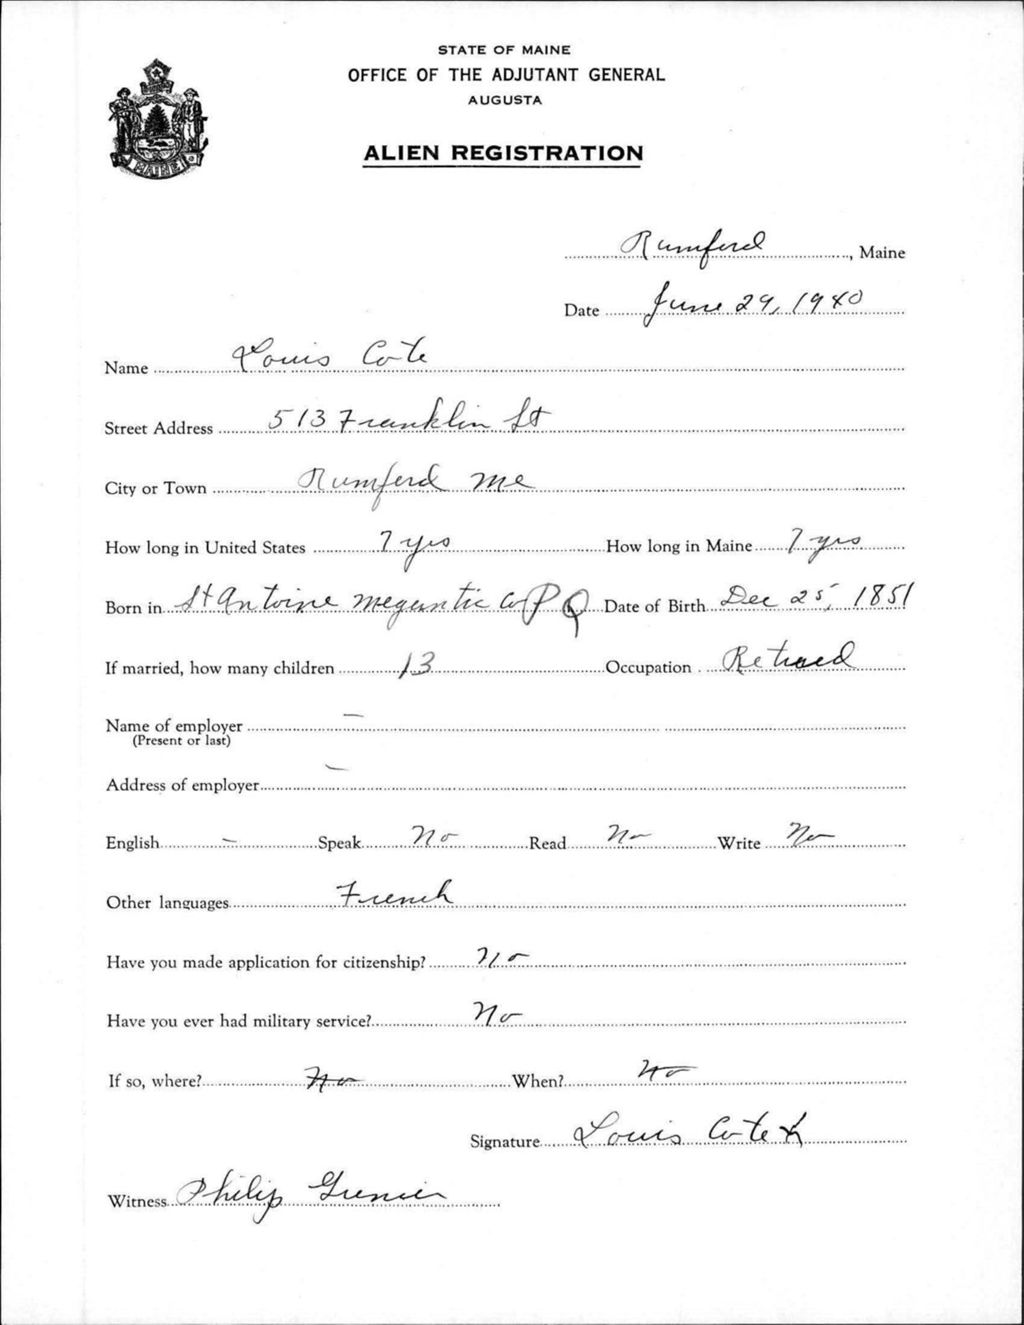 STATE OF MAINE
OFFICE OF THE ADJUTANT GENERAL
AUGUSTA
ALIEN REGISTRATION
MAINE
Rumford, Maine
Date June 29, 1940
Name Louis Cote
Street Address 513 Franklin St
City or Town Rumford Me
How long in United States 7 yrs How long in Maine 7 yrs
Born in St Antoine Megantic Co P Q Date of Birth Dec 25, 1851
If married, how many children 13 Occupation Retired
Name of employer –
(Present or last)
Address of employer –
English – Speak No Read No Write No
Other languages French
Have you made application for citizenship? No
Have you ever had military service? No
If so, where? No When? No
Signature Louis Cote X
Witness Philip Grenier